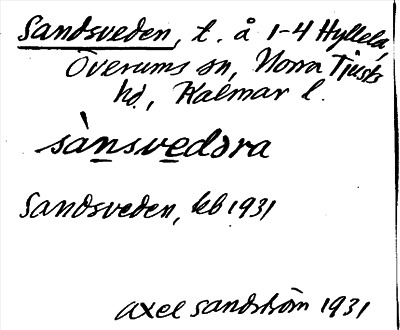 Sandsveden, t. å 1-4 Hyllela,
Överums sn, Norra Tjusts
hd., Kalmar l.
sànsvedəra
Sandsveden, kb 1931
Axel Sandström 1931